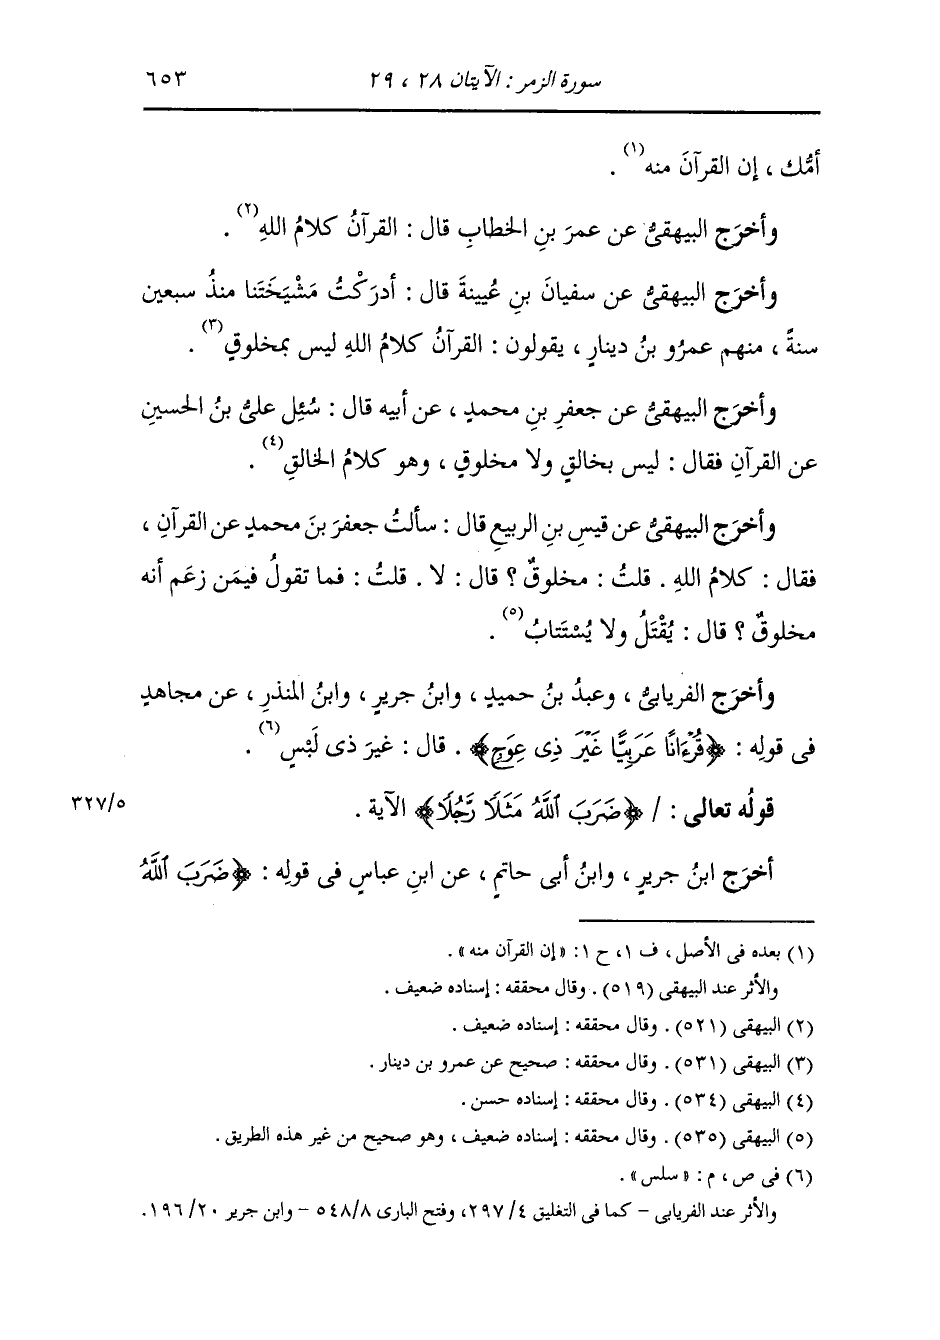 سورة الزمر : الآيتان ٢٨ ، ٢٩ ٦٥٣
أمُّك ، إن القرآنَ منه(١) .
وأخرَج البيهقىُّ عن عمرَ بنِ الخطابِ قال : القرآنُ كلامُ اللهِ(٢) .
وأخرَج البيهقىُّ عن سفيانَ بنِ عُيينةَ قال : أدرَكْتُ مَشْيَخَتَنا منذُ سبعين
سنةً ، منهم عمرُو بنُ دينارٍ ، يقولون : القرآنُ كلامُ اللهِ ليس بمخلوقٍ(٣) .
وأخرَج البيهقىُّ عن جعفرِ بنِ محمدٍ ، عن أبيه قال : سُئِل علىُّ بنُ الحسينِ
عن القرآنِ فقال : ليس بخالقٍ ولا مخلوقٍ ، وهو كلامُ الخالقِ(٤) .
وأخرَج البيهقىُّ عن قيسِ بنِ الربيعِ قال : سألتُ جعفرَ بنَ محمدٍ عن القرآنِ ،
فقال : كلامُ اللهِ . قلتُ : مخلوقٌ ؟ قال : لا . قلتُ : فما تقولُ فيمَن زعَم أنه
مخلوقٌ ؟ قال : يُقْتَلُ ولا يُسْتَتابُ(٥) .
وأخرَج الفريابىُّ ، وعبدُ بنُ حميدٍ ، وابنُ جريرٍ ، وابنُ المنذرِ ، عن مجاهدٍ
فى قولِه : ﴿قُرْءَانًا عَرَبِيًّا غَيْرَ ذِى عِوَجٍ﴾ . قال : غيرَ ذى لَبْسٍ(٦) .
قولُه تعالى : / ﴿ضَرَبَ ٱللَّهُ مَثَلًا رَّجُلًا﴾ الآية . ٣٢٧/٥
أخرَج ابنُ جريرٍ ، وابنُ أبى حاتمٍ ، عن ابنِ عباسٍ فى قولِه : ﴿ضَرَبَ ٱللَّهُ
(١) بعده فى الأصل ، ف ١، ح ١: « إن القرآن منه » .
والأثر عند البيهقى (٥١٩) . وقال محققه : إسناده ضعيف .
(٢) البيهقى (٥٢١) . وقال محققه : إسناده ضعيف .
(٣) البيهقى (٥٣١) . وقال محققه : صحيح عن عمرو بن دينار .
(٤) البيهقى (٥٣٤) . وقال محققه : إسناده حسن .
(٥) البيهقى (٥٣٥) . وقال محققه : إسناده ضعيف ، وهو صحيح من غير هذه الطريق .
(٦) فى ص ، م : « سلس » .
والأثر عند الفريابى – كما فى التغليق ٤/ ٢٩٧، وفتح البارى ٥٤٨/٨ – وابن جرير ٢٠/ ١٩٦.